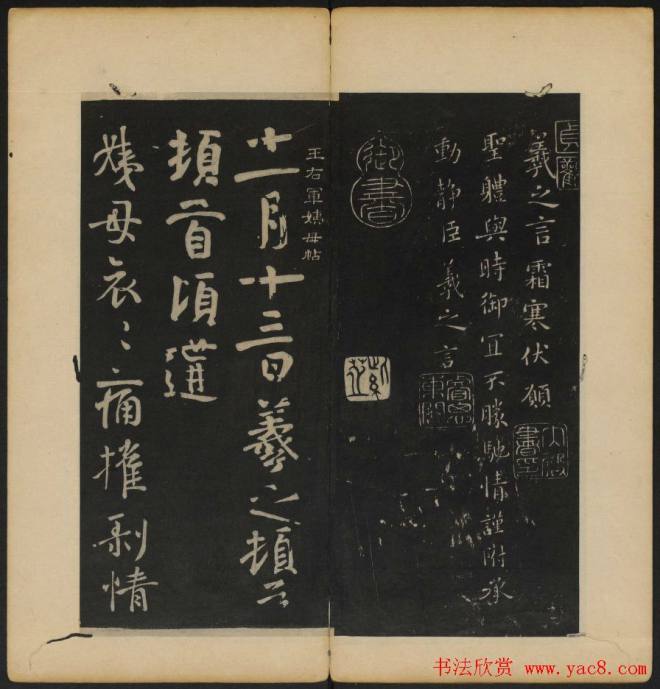 貞觀
羲之言霜寒伏願
聖體與時御宜不勝馳情謹附承
動靜臣羲之言
御書
王右軍姨母帖
十一月十三日羲之頓首
頓首頃遘
姨母哀〻痛摧剝情
书法欣赏 www.yac8.com